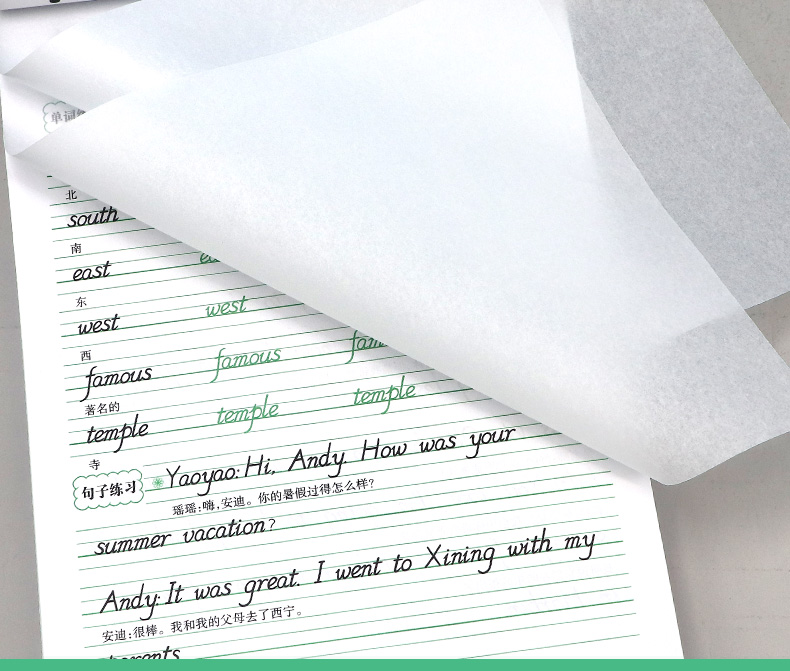 单词
北
south
南
east
东
west west
西
famous famous
著名的
temple temple temple
寺
句子练习 Yaoyao: Hi, Andy. How was your
瑶瑶:嗨,安迪。你的暑假过得怎么样?
summer vacation?
Andy: It was great. I went to Xining with my
安迪:很棒。我和我的父母去了西宁。
parents